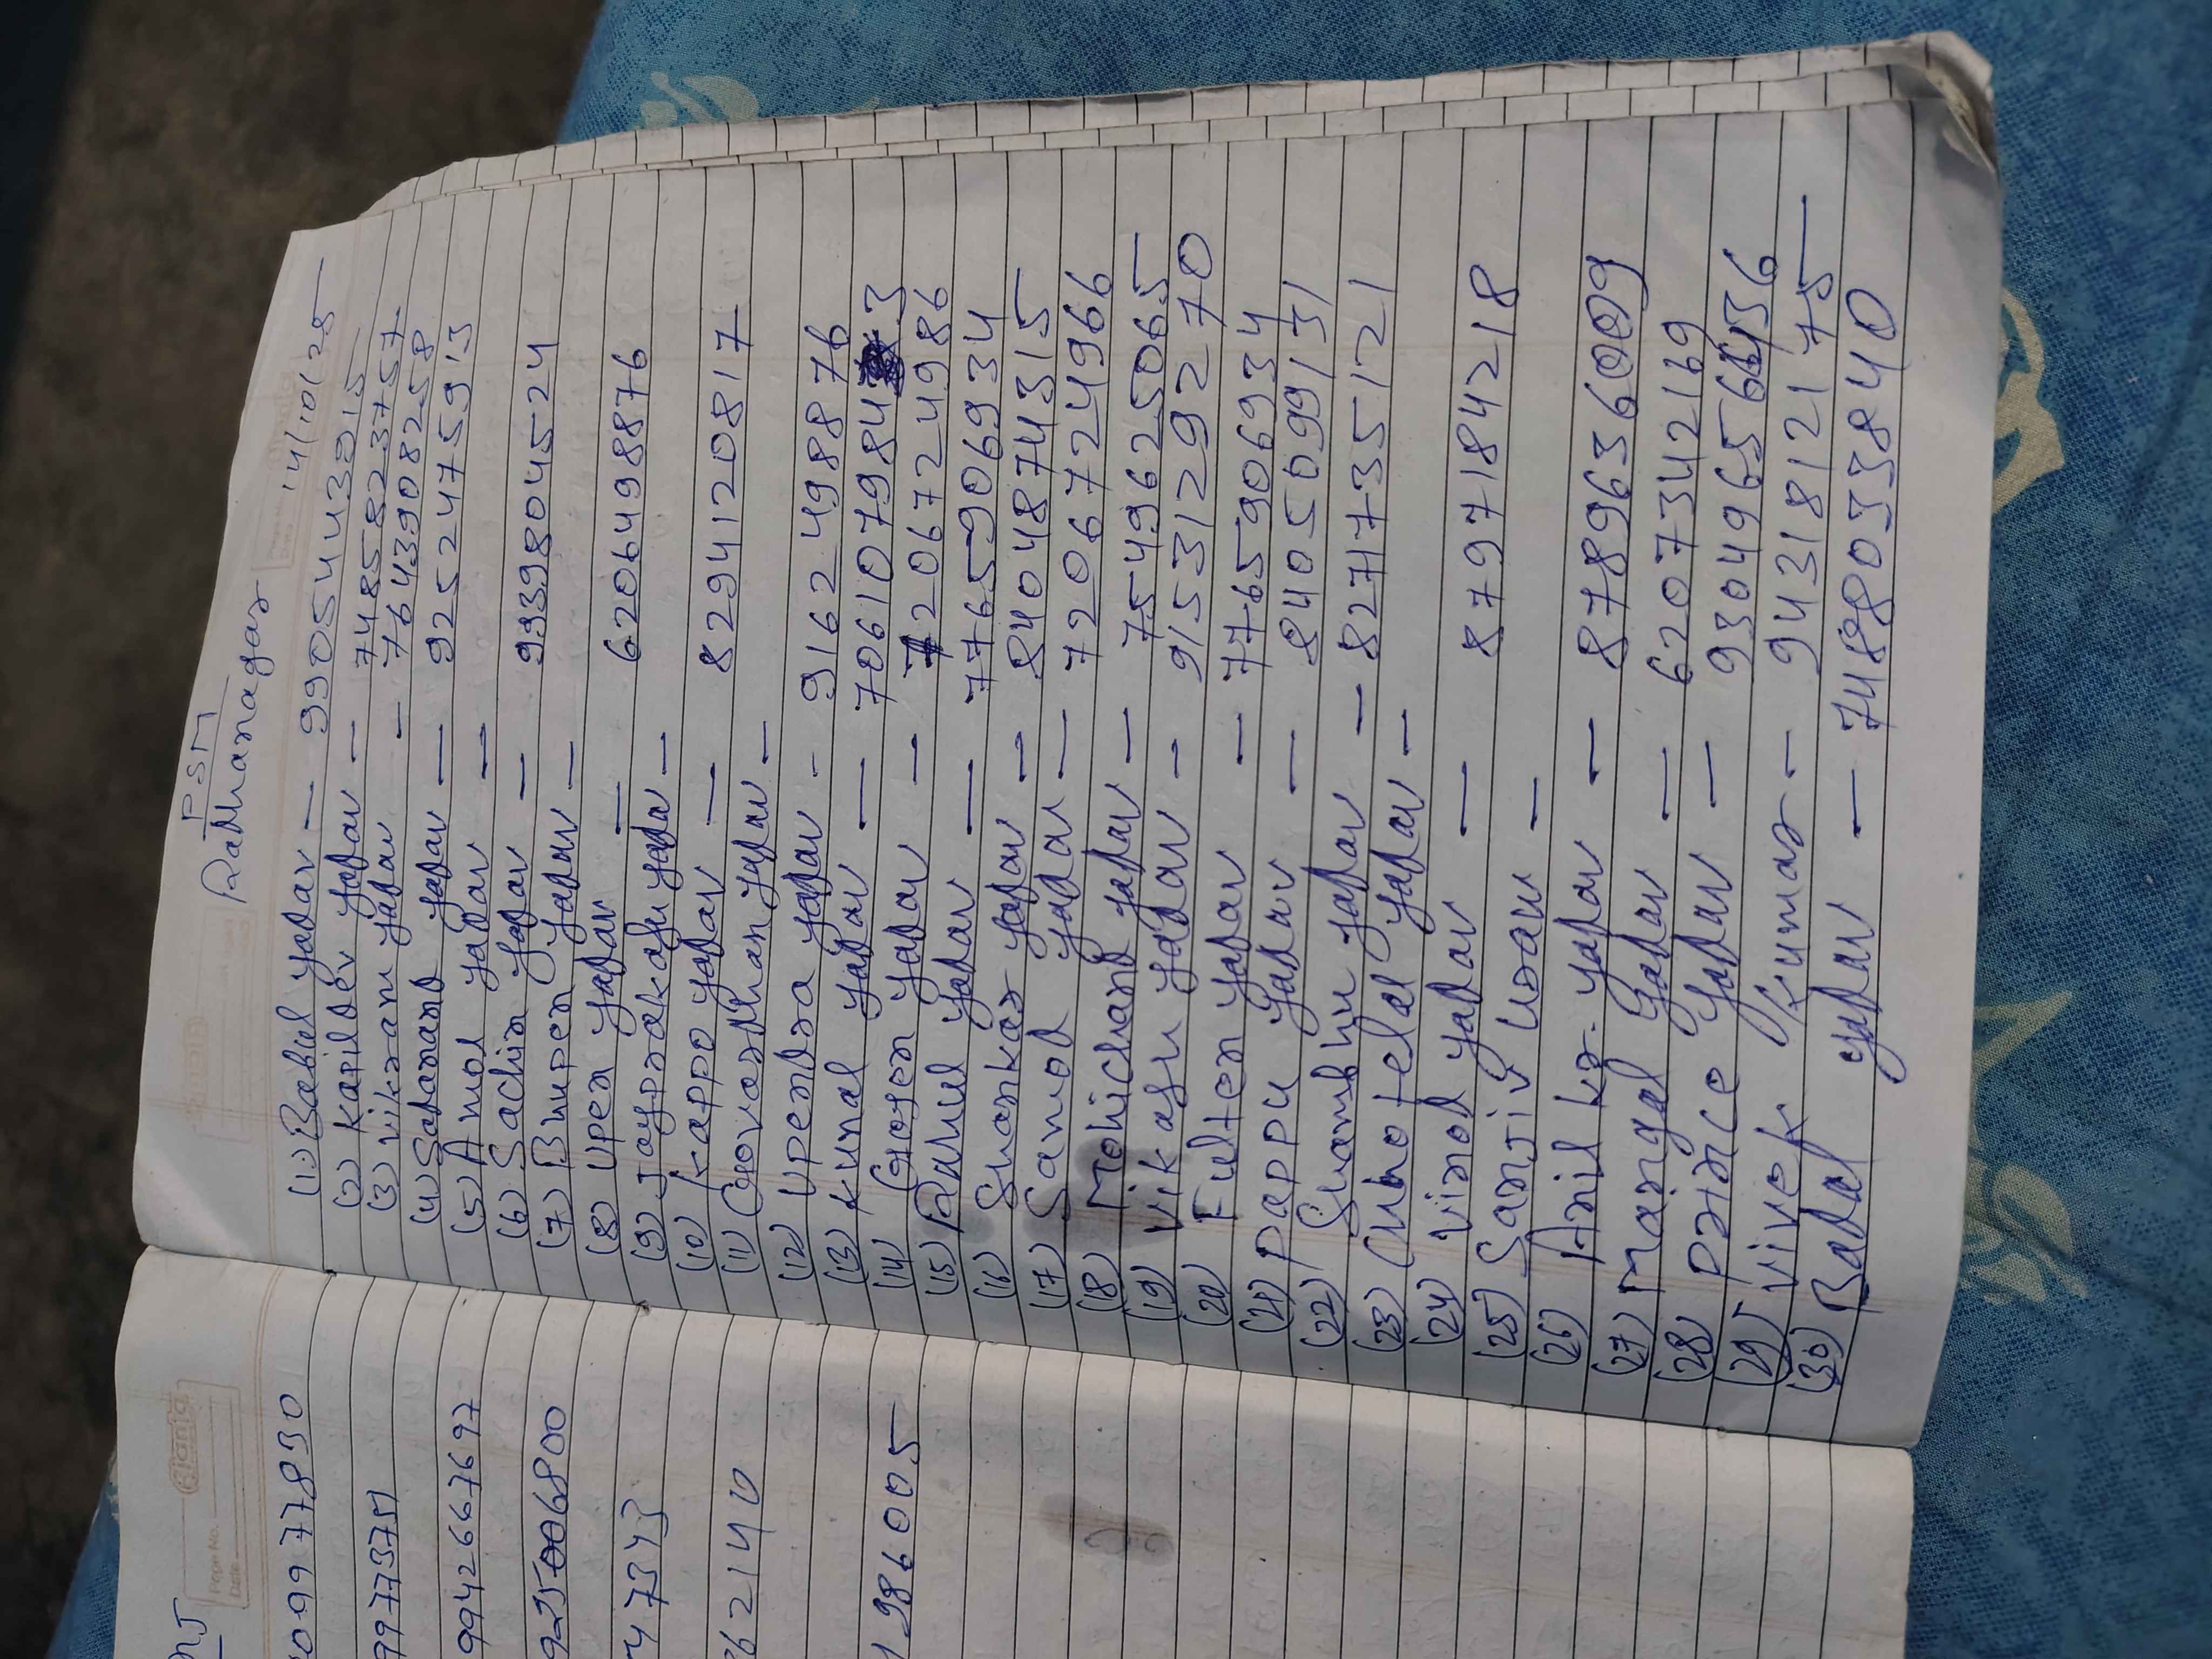 PSM
Radhanagar
14/10/25
(1) Babul yadav — 9905443015
(2) Kapildev yadav — 7485823757
(3) vikram yadav — 7643908258
(4) Sadanand yadav — 9252475913
(5) Amod yadav —
(6) Sachin yadav — 9939804524
(7) Bhupen yadav —
(8) Upen yadav — 6206498876
(9) Jayprakash yadav —
(10) Kappo yadav — 8294120817
(11) Govardhan yadav —
(12) Upendra yadav - 9162498876
(13) Kunal yadav — 7061079843
(14) Gajen yadav — 7206724986
(15) Rahul yadav — 7765906934
(16) Shankar yadav — 8404874315
(17) Samod yadav — 7206724966
(18) Mohichand yadav — 7549625065
(19) Vikash yadav — 9153129270
(20) Fulten yadav — 7765906934
(21) Pappu yadav — 8405099131
(22) Shambhu yadav — 8271735121
(23) Chhotelal yadav —
(24) Vinod yadav — 8797184218
(25) Sanjiv Uraw —
(26) Anil kr. yadav — 8789636009
(27) Mangal yadav — 6207342169
(28) Prince yadav —
(29) Vivek Kumar - 9431812175
(30) Badal yadav — 7488033840
Page No.
Date
09977830
9977375
9942667697
925006800
47343
62140
1986005